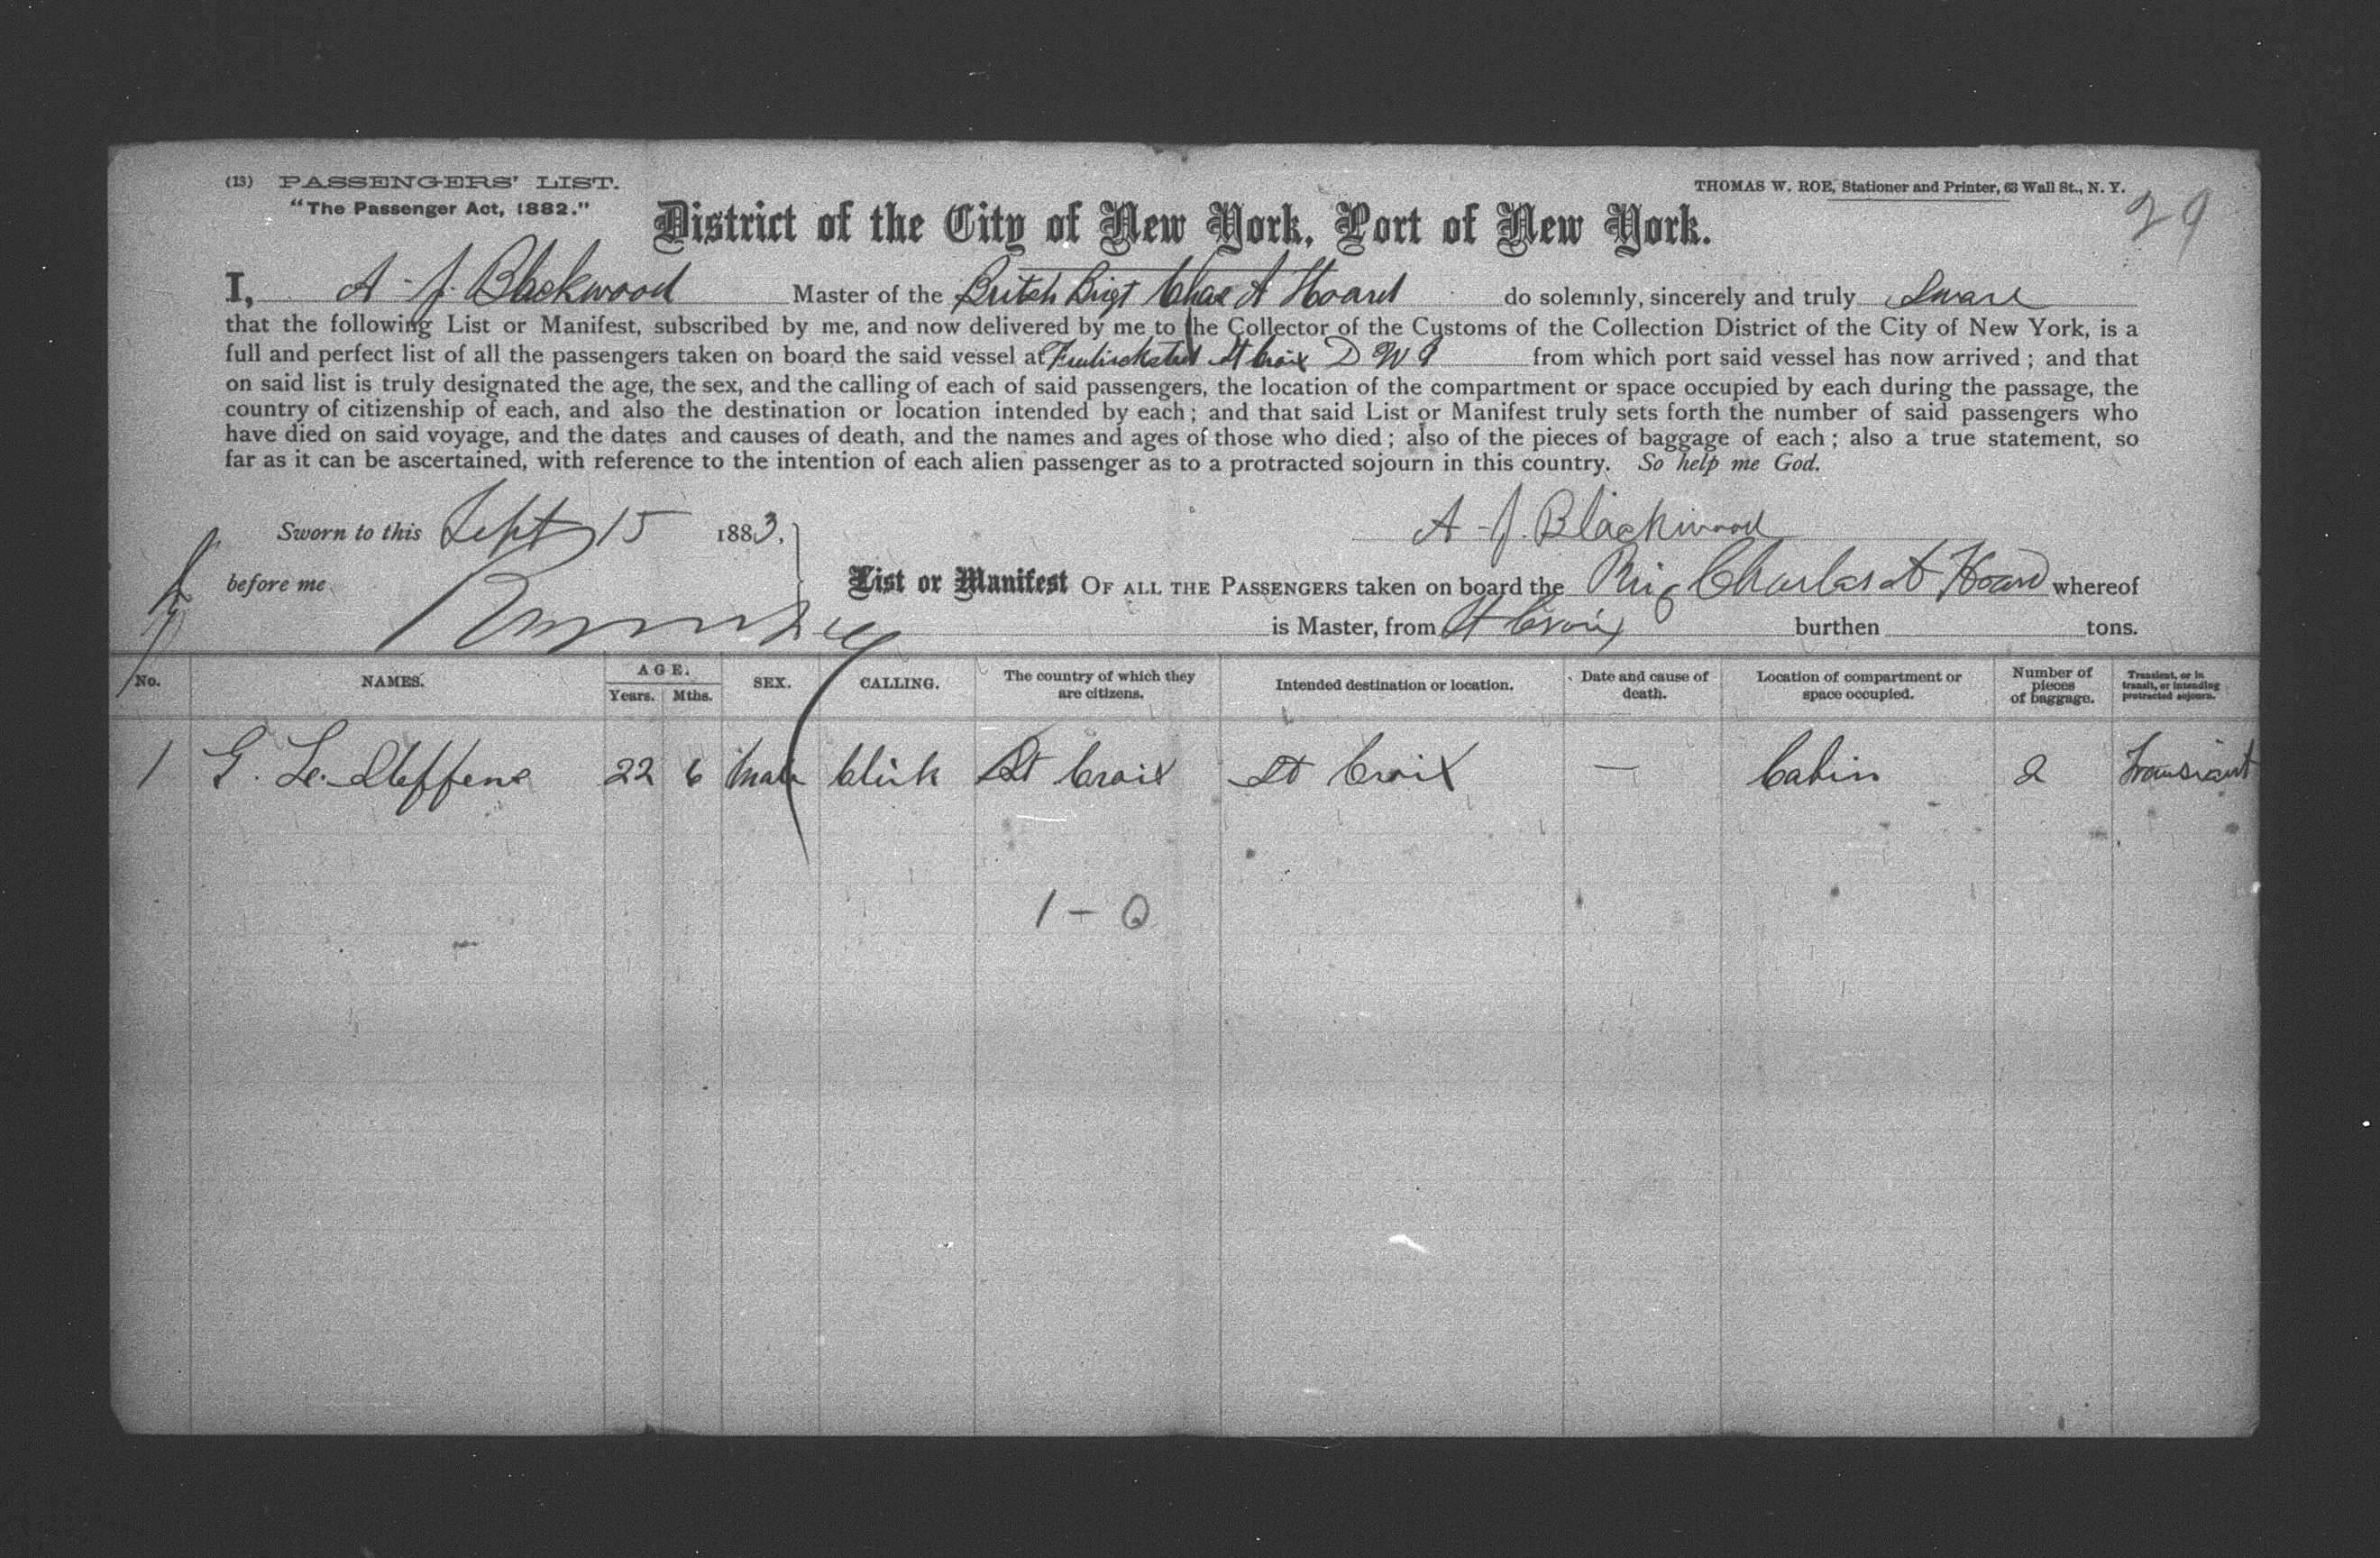 (13) PASSENGERS' LIST.
"The Passenger Act, 1882."
THOMAS W. ROE, Stationer and Printer, 63 Wall St., N. Y.
29
District of the City of New York, Port of New York.
I, A. J. Blackwood Master of the British Brigt Chas A Hoard do solemnly, sincerely and truly Sware
that the following List or Manifest, subscribed by me, and now delivered by me to the Collector of the Customs of the Collection District of the City of New York, is a
full and perfect list of all the passengers taken on board the said vessel at Fredricksted St Croix D W I from which port said vessel has now arrived; and that
on said list is truly designated the age, the sex, and the calling of each of said passengers, the location of the compartment or space occupied by each during the passage, the
country of citizenship of each, and also the destination or location intended by each; and that said List or Manifest truly sets forth the number of said passengers who
have died on said voyage, and the dates and causes of death, and the names and ages of those who died; also of the pieces of baggage of each; also a true statement, so
far as it can be ascertained, with reference to the intention of each alien passenger as to a protracted sojourn in this country. So help me God.
Sworn to this Sept 15 1883,
A. J. Blackwood
before me
List or Manifest OF ALL THE PASSENGERS taken on board the Brig Charles A Hoard whereof
is Master, from St Croix burthen tons.
No. NAMES. AGE. Years. Mths. SEX. CALLING. The country of which they are citizens. Intended destination or location. Date and cause of death. Location of compartment or space occupied. Number of pieces of baggage. Transient, or in transit, or intending protracted sojourn.
1 G. Le. Steffens 22 6 Male Clerk St Croix St Croix — Cabin 2 Transient
1 - 0